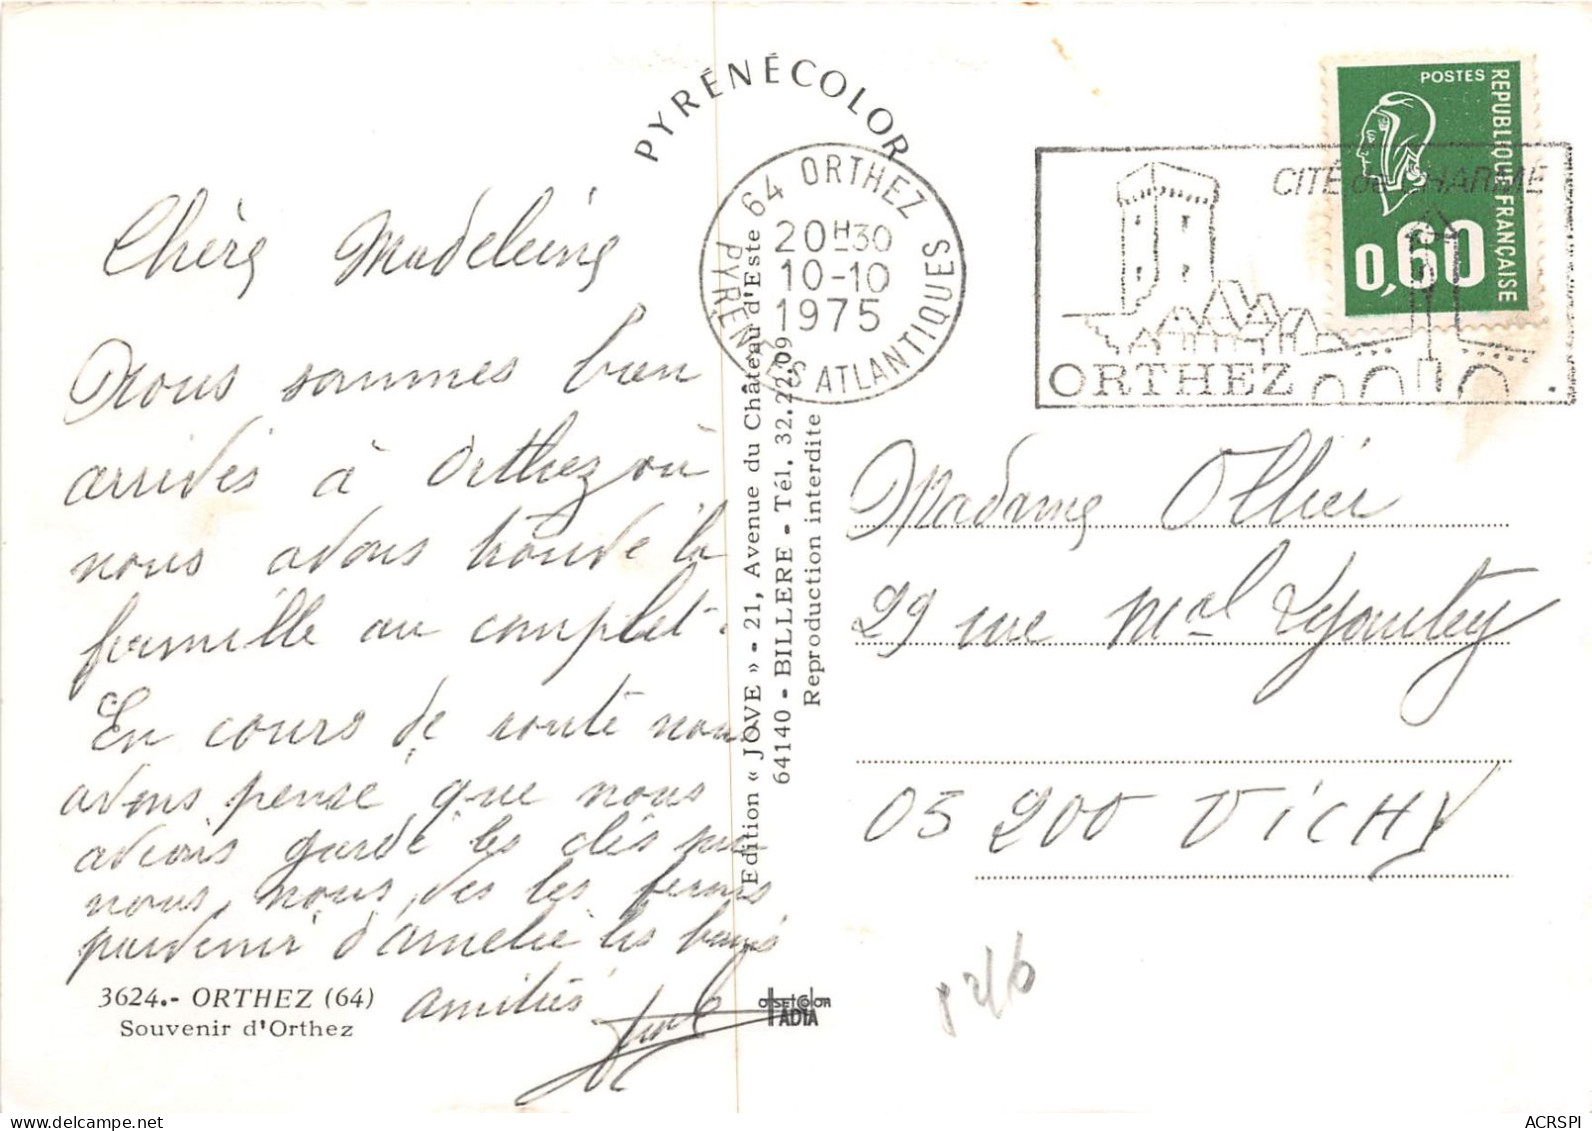 PYRÉNÉCOLOR
64 ORTHEZ
20H30
10-10
1975
PYRÉNÉES ATLANTIQUES
CITÉ de CHARME
ORTHEZ
POSTES
REPUBLIQUE FRANÇAISE
0,60
Chère Madeleine
Nous sommes bien
arrivés à Orthez où
nous avons trouvé la
famille au complet.
En cours de route nous
avons pensé que nous
avions gardé les clés
nous, nous les ferons
parvenir d'Amélie les bains
amitiés
Madame Ollier
29 rue Mal Lyautey
03 200 VICHY
Edition « JOVE » - 21, Avenue du Château d'Este
64140 - BILLERE - Tél. 32.22.09
Reproduction interdite
3624.- ORTHEZ (64)
Souvenir d'Orthez
OffsetColor
IADIA
ACRSPI